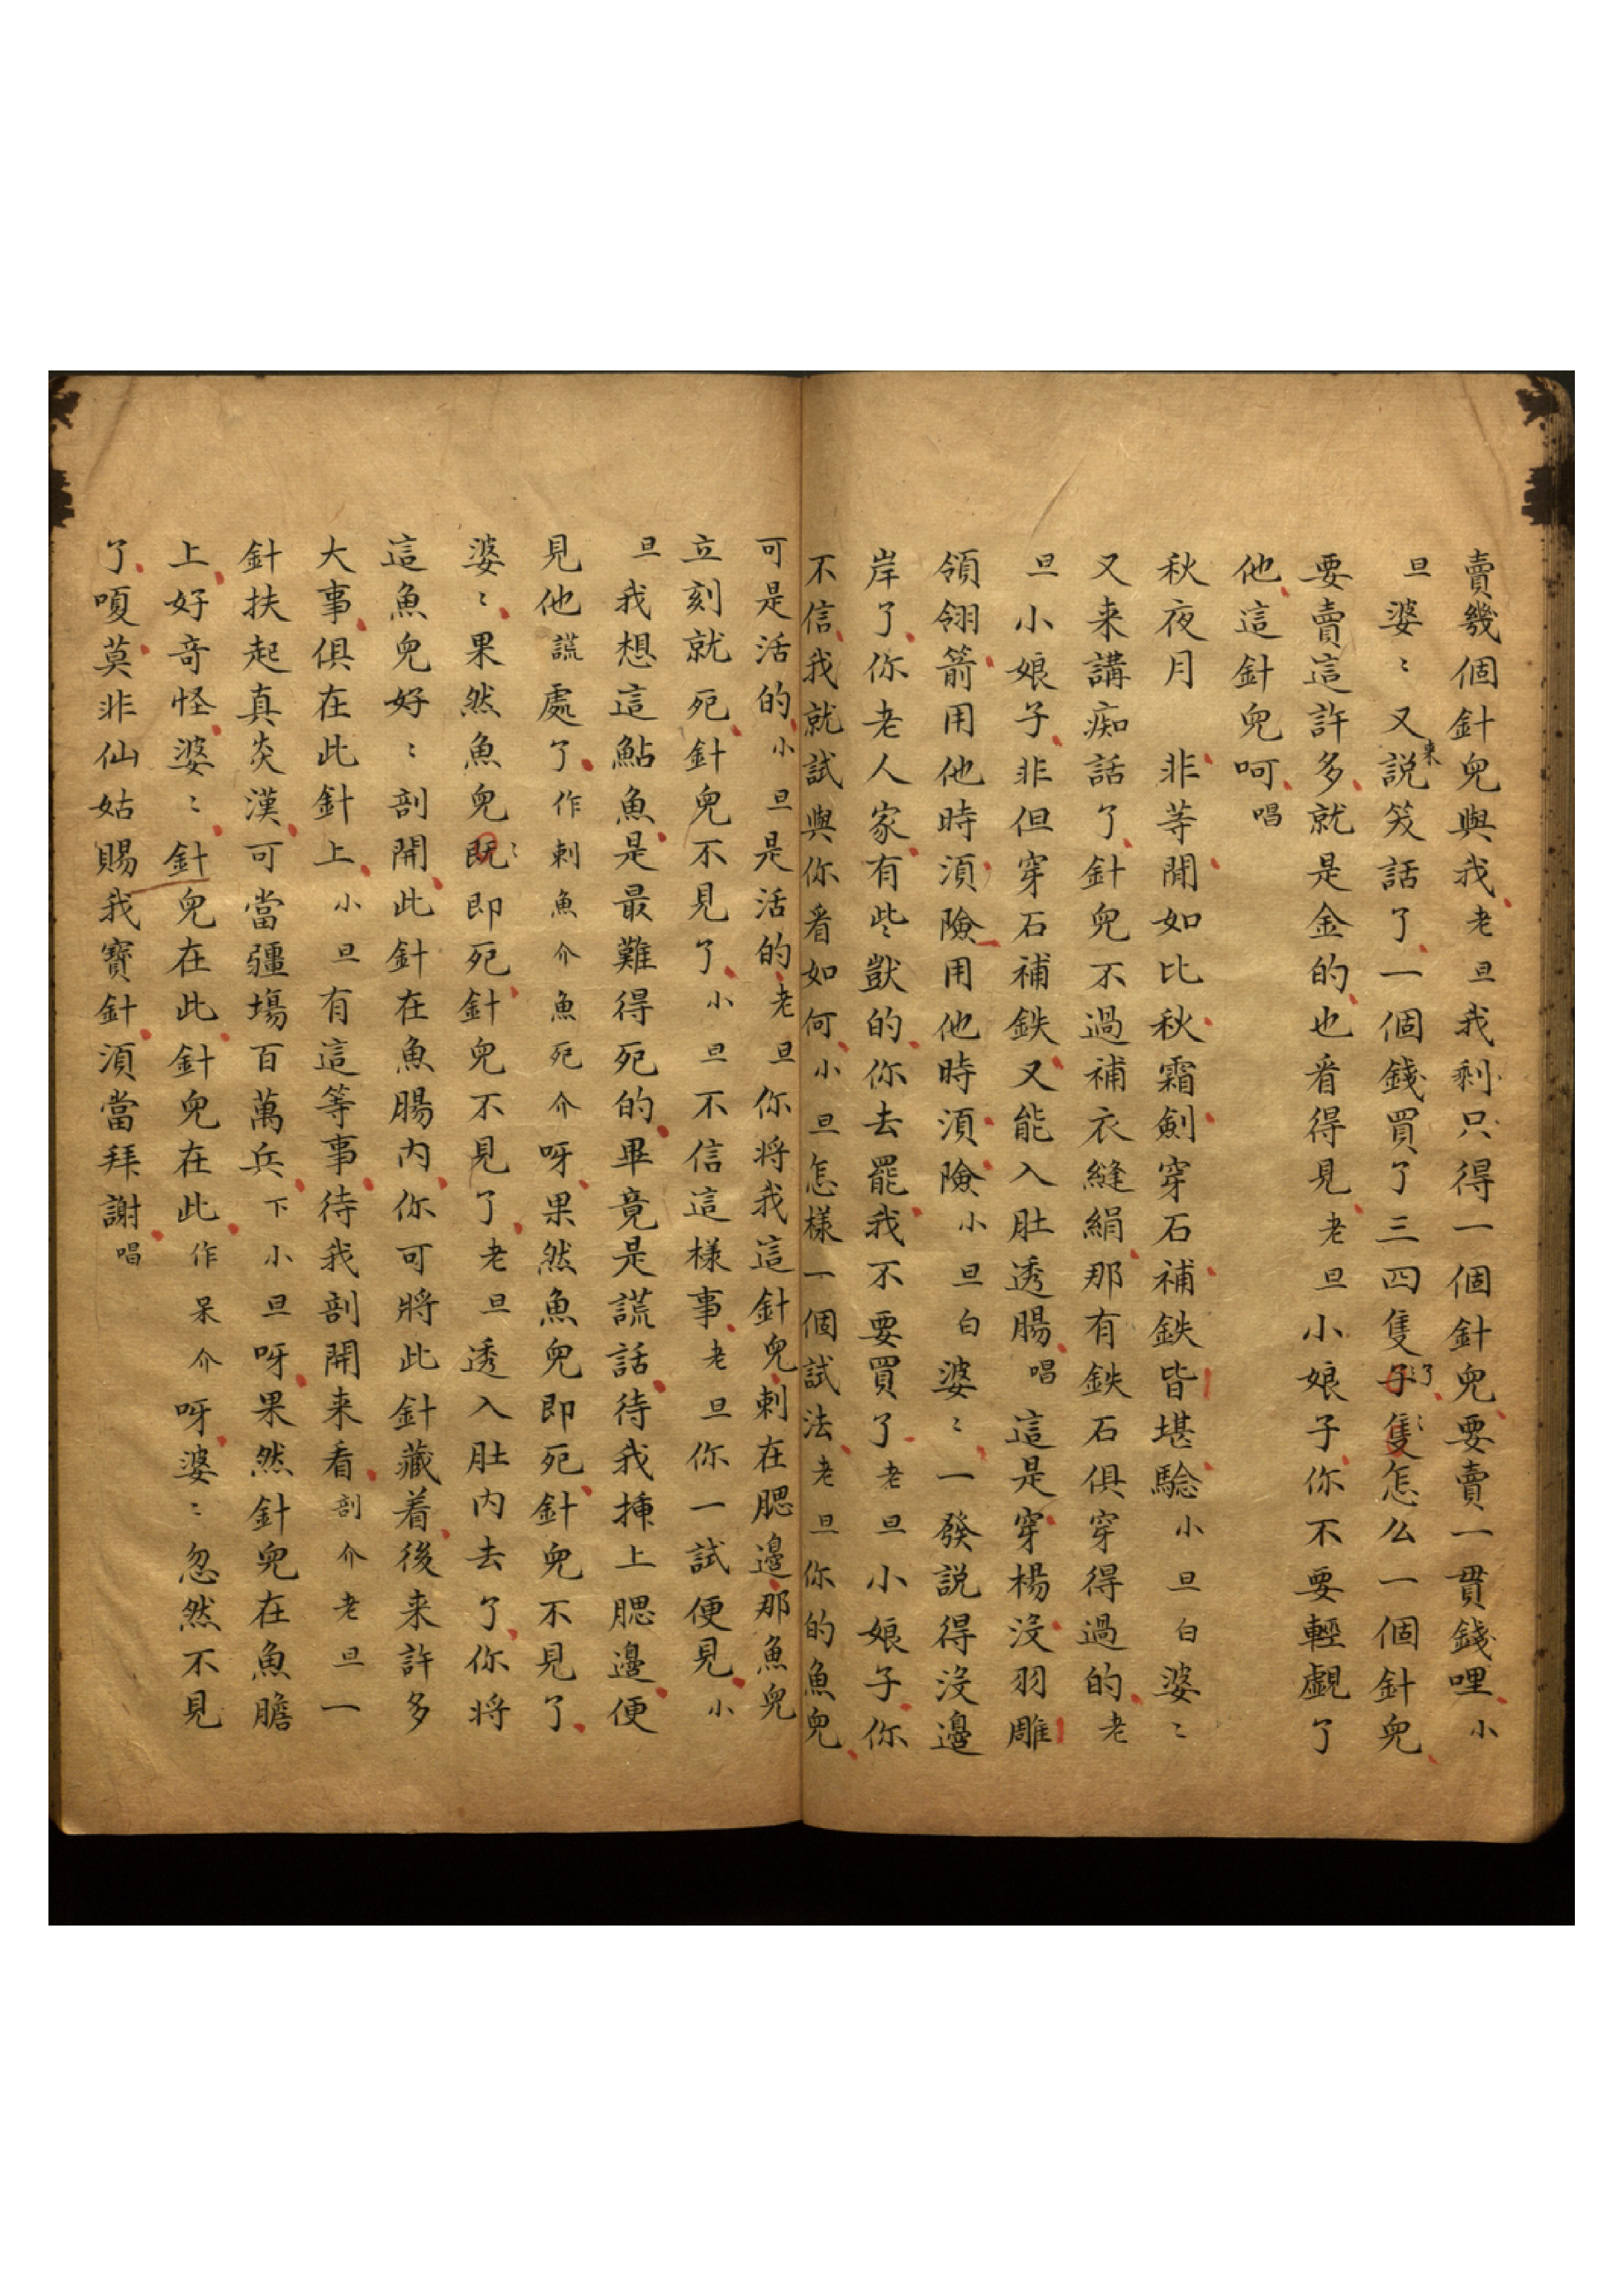 賣幾個針兒與我老旦我剩只得一個針兒要賣一貫錢哩小
旦婆〻又説來笑話了一個錢買了三四隻了怎么一個針兒
要賣這許多就是金的也看得見老旦小娘子你不要輕覷了
他這針兒呵唱
秋夜月 非等閒如比秋霜劍穿石補鉄皆堪騐小旦白婆〻
又来講痴話了針兒不過補衣縫絹那有鉄石俱穿得過的老
旦小娘子非但穿石補鉄又能入肚透腸唱這是穿楊沒羽雕
領翎箭用他時湏險用他時湏險小旦白婆〻一發説得沒邊
岸了你老人家有些獃的你去罷我不要買了老旦小娘子你
不信我就試與你看如何小旦怎樣一個試法老旦你的魚兒
可是活的小旦是活的老旦你将我這針兒刺在腮邊那魚兒
立刻就死針兒不見了小旦不信這樣事老旦你一試便見小
旦我想這鮎魚是最難得死的畢竟是謊話待我揷上腮邊便
見他謊處了作刺魚介魚死介呀果然魚兒即死針兒不見了
婆〻果然魚兒即死針兒不見了老旦透入肚内去了你将
這魚兒好〻剖開此針在魚腸内你可將此針藏着後来許多
大事俱在此針上小旦有這等事待我剖開来看剖介老旦一
針扶起真炎漢可當疆場百萬兵下小旦呀果然針兒在魚膽
上好竒怪婆〻針兒在此針兒在此作呆介呀婆〻忽然不見
了嗄莫非仙姑賜我寶針湏當拜謝唱